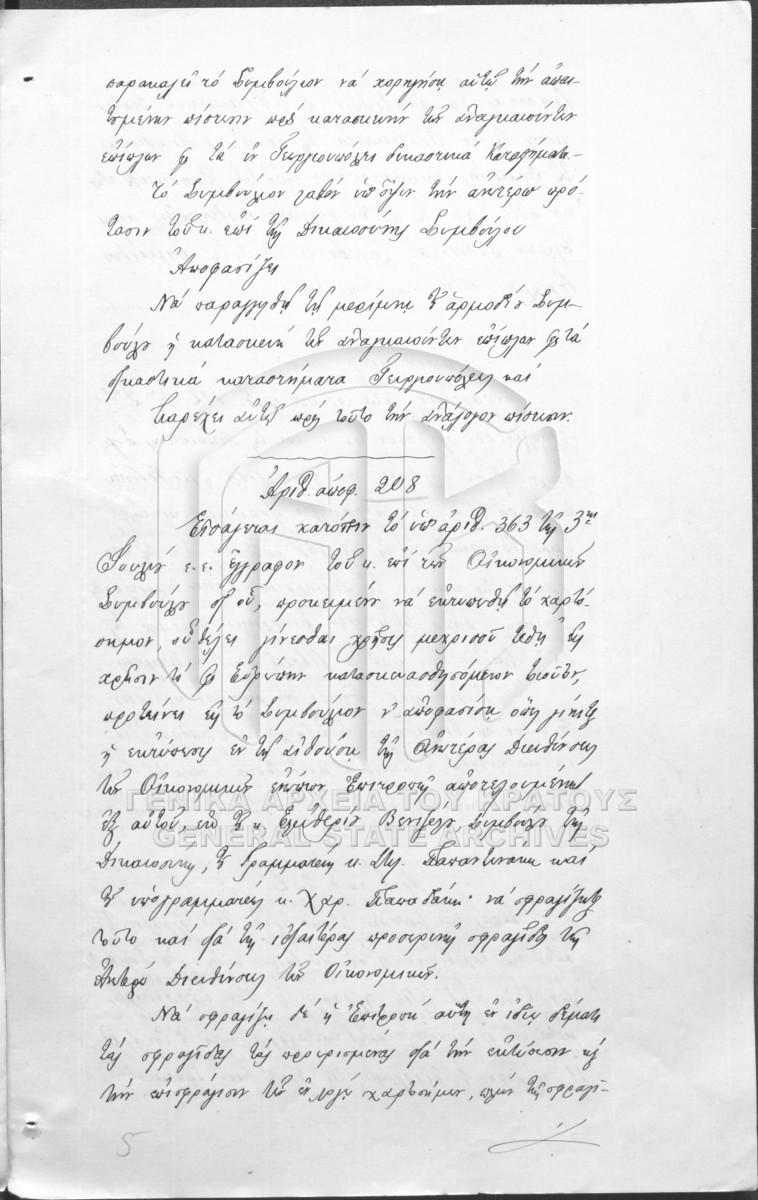 παρακαλεῖ τὸ Συμβούλιον νὰ χορηγήσῃ αὐτῷ τὴν ἀπαι-
τουμένην πίστωσιν πρὸς κατασκευὴν τῶν ἀναγκαιούντων
ἐπίπλων διὰ τὰ ἐν Γεωργιουπόλει δικαστικὰ Καταστήματα.-
Τὸ Συμβούλιον λαβὸν ὑπ' ὄψιν τὴν ἀνωτέρω πρό-
τασιν τοῦ κ. ἐπὶ τῆς Δικαιοσύνης Συμβούλου
Ἀποφασίζει
Νὰ παραγγελθῇ τῇ μερίμνῃ τοῦ ἁρμοδίου Συμ-
βούλου ἡ κατασκευὴ τῶν ἀναγκαιούντων ἐπίπλων διὰ τὰ
δικαστικὰ καταστήματα Γεωργιουπόλεως καὶ
παρέχει αὐτῷ πρὸς τοῦτο τὴν ἀνάλογον πίστωσιν.
Ἀριθ. ἀποφ. 208
Εἰσάγεται κατόπιν τὸ ὑπ' ἀριθ. 363 τῆς 3ης
Ἰουλίου ε.ε. ἔγγραφον τοῦ κ. ἐπὶ τῶν Οἰκονομικῶν
Συμβούλου δι' οὗ, προκειμένου νὰ ἐκτυπωθῇ τὸ χαρτό-
σημον, οὗ θέλει γίνεσθαι χρῆσις μέχρις οὗ τεθῇ εἰς
χρῆσιν τὸ ἐν Εὐρώπῃ κατασκευασθησόμενον τοιοῦτον,
προτείνει εἰς τὸ Συμβούλιον ν' ἀποφασίσῃ ὅπως γίνηται
ἡ ἐκτύπωσις ἐν τῇ αἰθούσῃ τῆς Ἀνωτέρας Διευθύνσεως
τῶν Οἰκονομικῶν ἐνώπιον Ἐπιτροπῆς ἀποτελουμένης
ἐξ αὐτοῦ, ὑπὸ τοῦ κ. Ἐλευθερίου Βενιζέλου Συμβούλου τῆς
Δικαιοσύνης, τοῦ Γραμματέως κ. Παπαντωνάκη καὶ
τοῦ ὑπογραμματέως κ. Χαρ. Παπαδάκη· νὰ σφραγίζηται
τοῦτο καὶ διὰ τῆς ἰδιαιτέρας προσωρινῆς σφραγῖδος τῆς
Ἀνωτέρας Διευθύνσεως τῶν Οἰκονομικῶν.
Νὰ σφραγίζῃ δὲ ἡ Ἐπιτροπὴ αὕτη ἐν ἰδίῳ δέματι
τὰς σφραγῖδας τὰς προωρισμένας διὰ τὴν ἐκτύπωσιν καὶ
τὴν ἐπισφράγισιν τῶν ἐν λόγῳ χαρτοσήμων, πλὴν τῆς σφραγῖ-
5
ΓΕΝΙΚΑ ΑΡΧΕΙΑ ΤΟΥ ΚΡΑΤΟΥΣ
GENERAL STATE ARCHIVES